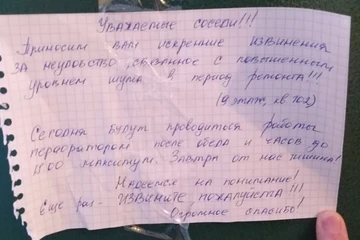 Уважаемые соседи!!!
Приносим вам искренние извинения
за неудобство, связанное с повышенным
уровнем шума в период ремонта!!!
(9 этаж, кв 102)
Сегодня будут проводиться работы
перфоратором после обеда и часов до
17:00 максимум. Завтра от нас тишина!
Надеемся на понимание!
Еще раз - ИЗВИНИТЕ ПОЖАЛУЙСТА!!!
Огромное спасибо!